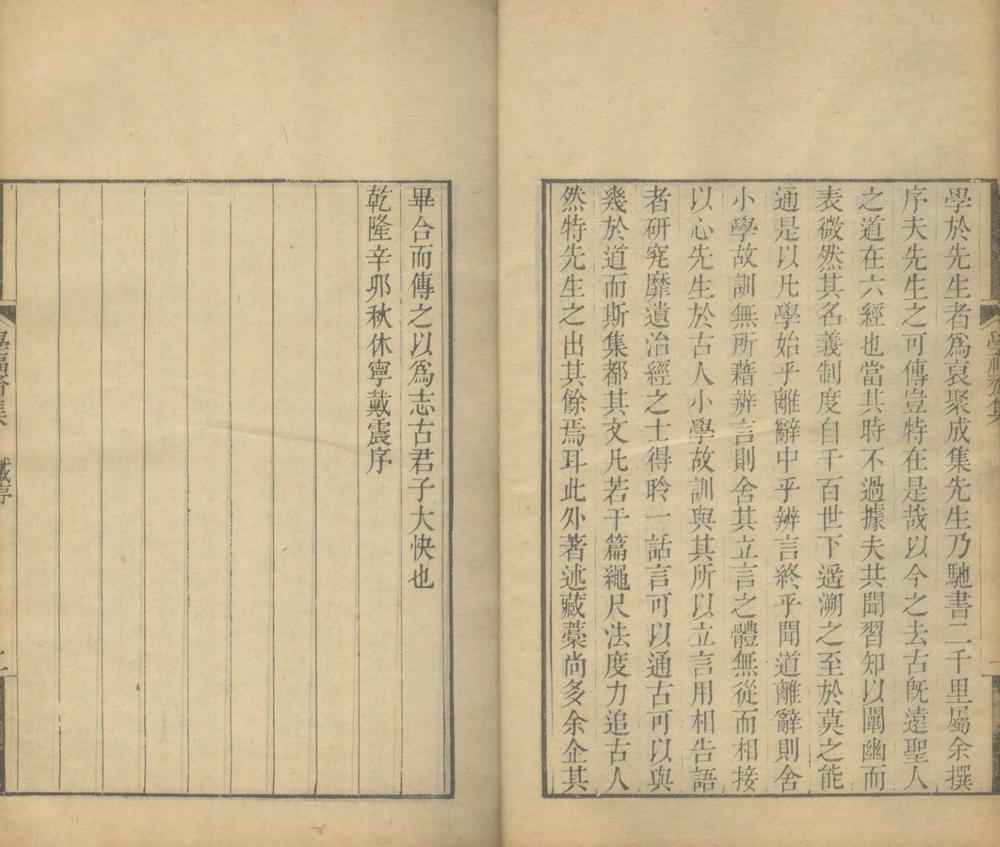 學於先生者爲裒聚成集先生乃馳書二千里屬余撰
序夫先生之可傳豈特在是哉以今之去古旣遠聖人
之道在六經也當其時不過據夫共聞習知以闡幽而
表微然其名義制度自千百世下遥溯之至於莫之能
通是以凡學始乎離辭中乎辨言終乎聞道離辭則舍
小學故訓無所藉辨言則舍其立言之體無從而相接
以心先生於古人小學故訓與其所以立言用相告語
者研究靡遺治經之士得聆一話言可以通古可以與
幾於道而斯集都其文凡若干篇繩尺法度力追古人
然特先生之出其餘焉耳此外著述藏藁尚多余企其
畢合而傳之以爲志古君子大快也
乾隆辛丣秋休寧戴震序